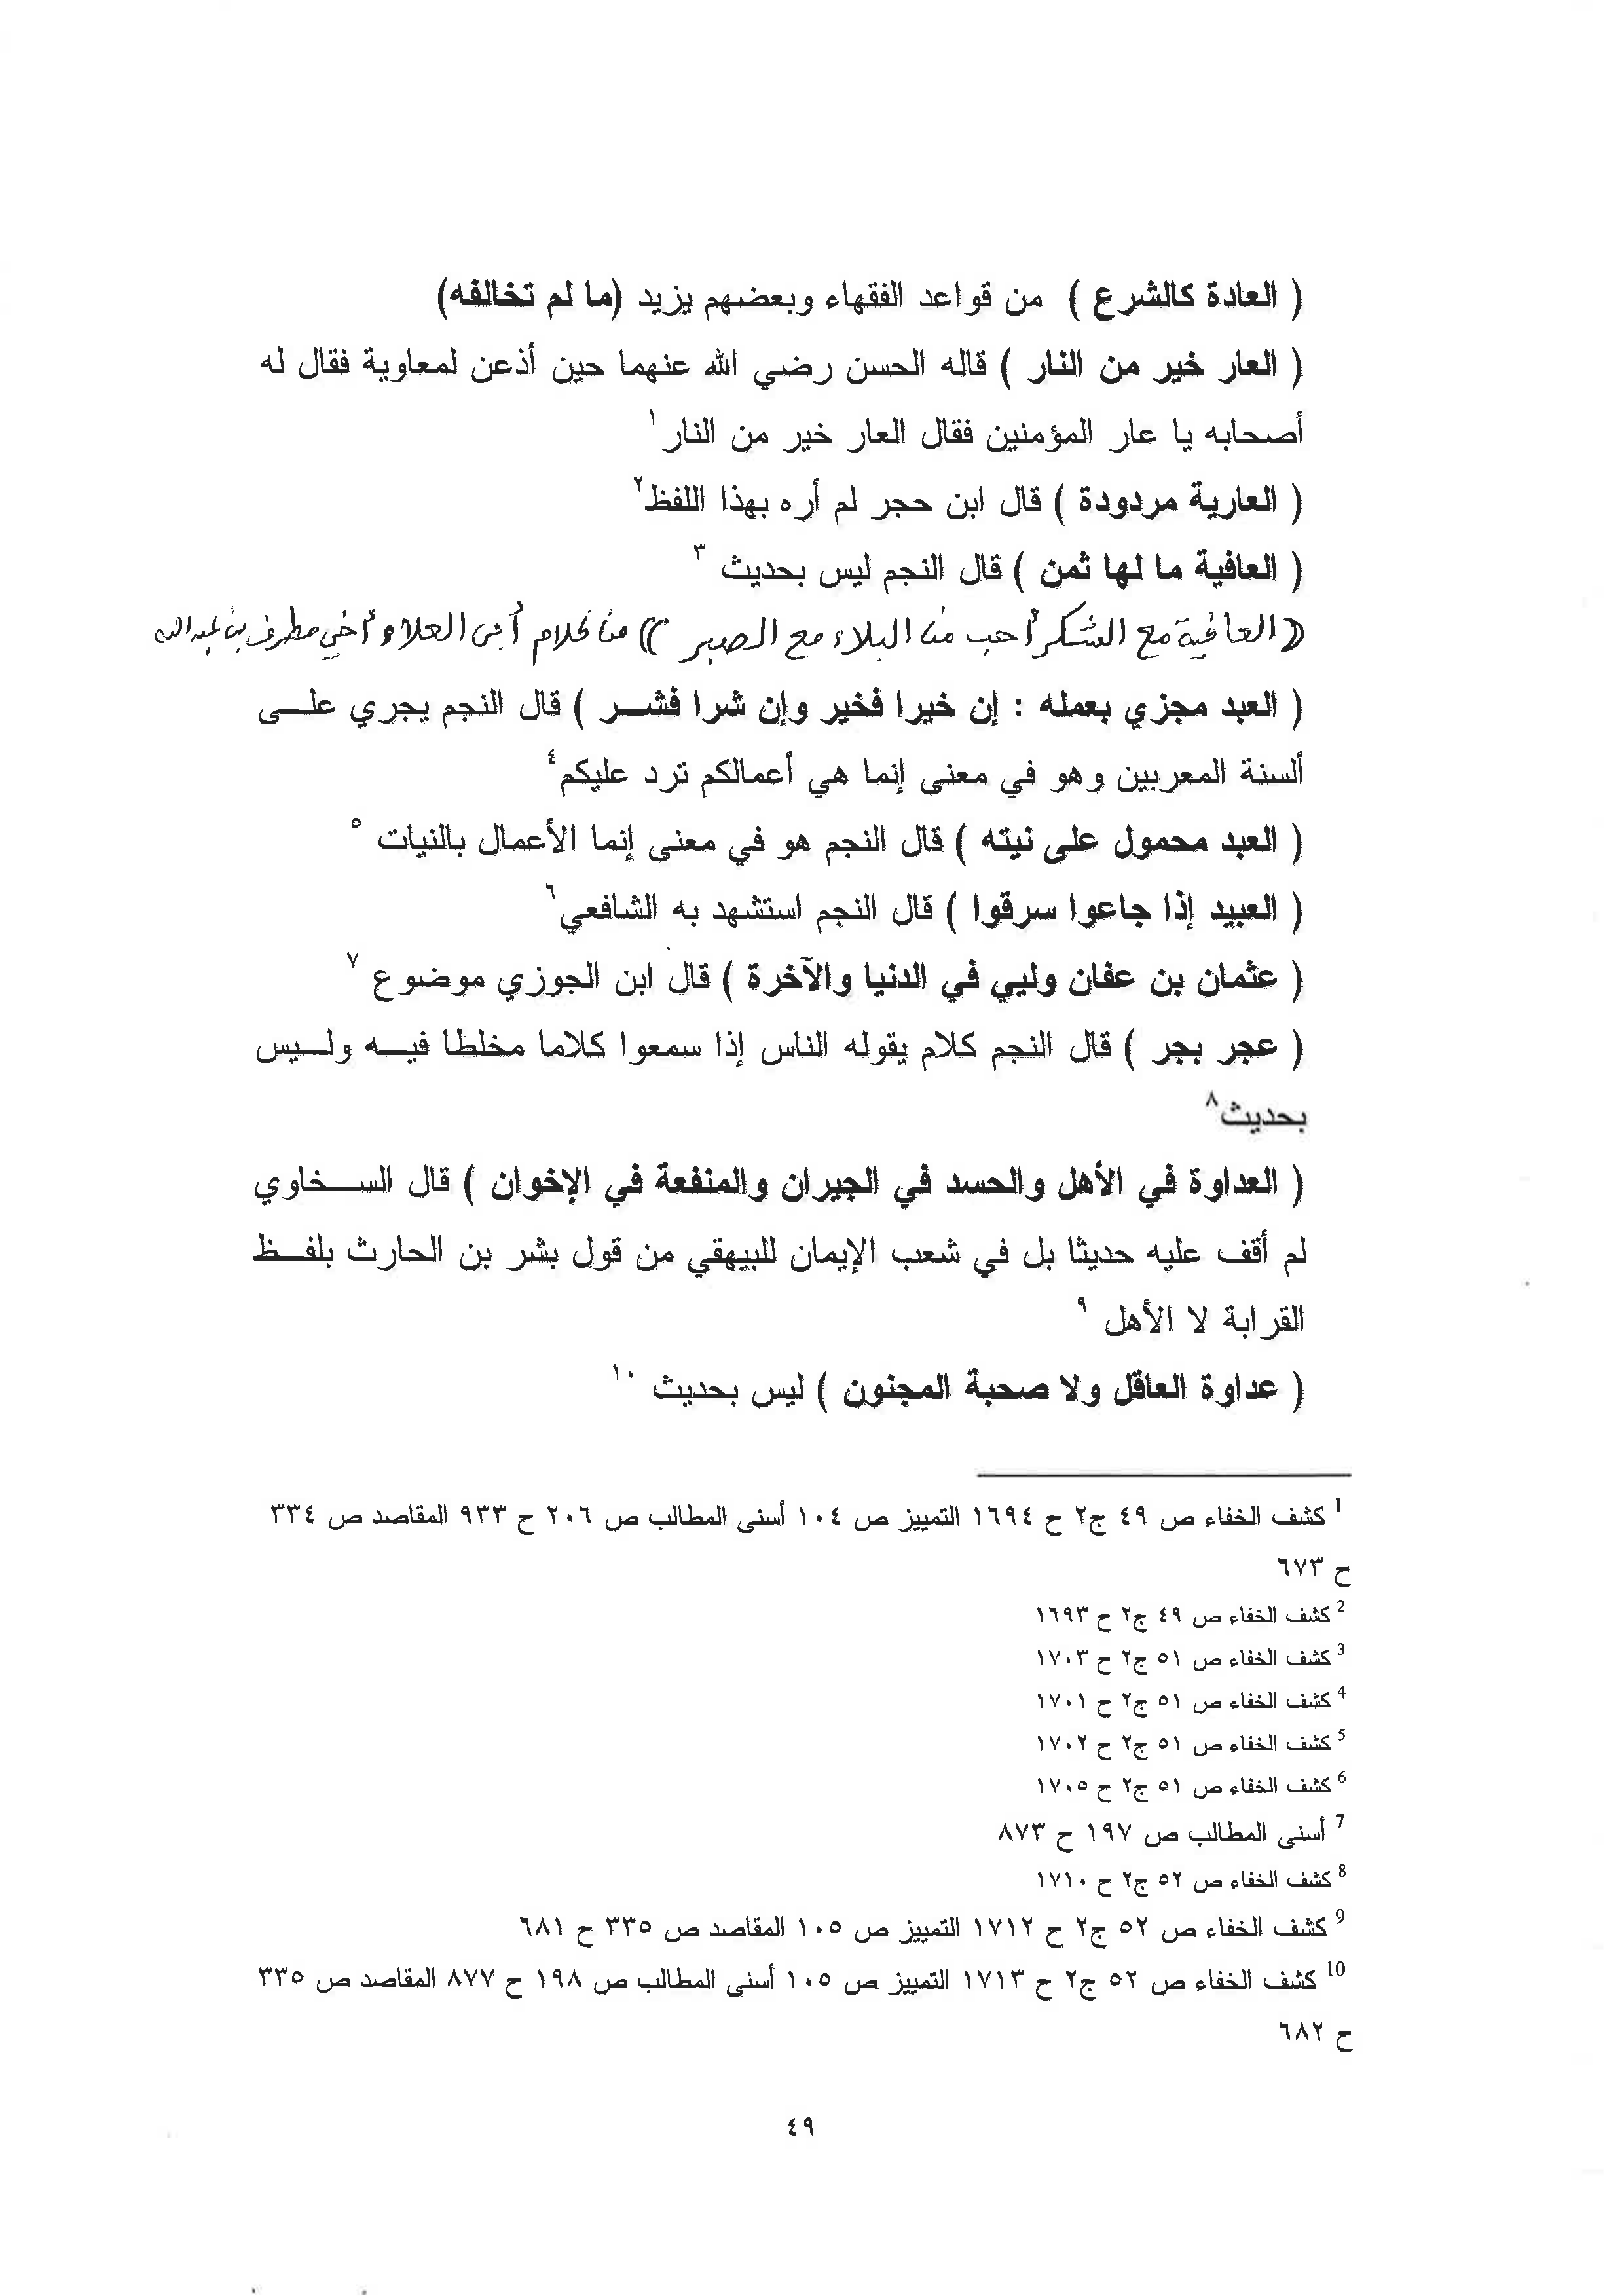 ( العادة كالشرع ) من قواعد الفقهاء وبعضهم يزيد (ما لم تخالفه)
( العار خير من النار ) قاله الحسن رضي الله عنهما حين أذعن لمعاوية فقال له
أصحابه يا عار المؤمنين فقال العار خير من النار١
( العارية مردودة ) قال ابن حجر لم أره بهذا اللفظ٢
( العافية ما لها ثمن ) قال النجم ليس بحديث ٣
(( العافية مع الشكر أحب من البلاء مع الصبر )) من كلام أبي العلاء أخي مطرف بن عبد الله
( العبد مجزي بعمله : إن خيرا فخير وإن شرا فشر ) قال النجم يجري على
ألسنة المعربين وهو في معنى إنما هي أعمالكم ترد عليكم٤
( العبد محمول على نيته ) قال النجم هو في معنى إنما الأعمال بالنيات ٥
( العبيد إذا جاعوا سرقوا ) قال النجم استشهد به الشافعي٦
( عثمان بن عفان وليي في الدنيا والآخرة ) قال ابن الجوزي موضوع ٧
( عجر بجر ) قال النجم كلام يقوله الناس إذا سمعوا كلاما مخلطا فيه وليس
بحديث٨
( العداوة في الأهل والحسد في الجيران والمنفعة في الإخوان ) قال السخاوي
لم أقف عليه حديثا بل في شعب الإيمان للبيهقي من قول بشر بن الحارث بلفظ
القرابة لا الأهل ٩
( عداوة العاقل ولا صحبة المجنون ) ليس بحديث ١٠
1 كشف الخفاء ص ٤٩ ج٢ ح ١٦٩٤ التمييز ص ١٠٤ أسنى المطالب ص ٢٠٦ ح ٩٣٣ المقاصد ص ٣٣٤
ح ٦٧٣
2 كشف الخفاء ص ٤٩ ج٢ ح ١٦٩٣
3 كشف الخفاء ص ٥١ ج٢ ح ١٧٠٣
4 كشف الخفاء ص ٥١ ج٢ ح ١٧٠١
5 كشف الخفاء ص ٥١ ج٢ ح ١٧٠٢
6 كشف الخفاء ص ٥١ ج٢ ح ١٧٠٥
7 أسنى المطالب ص ١٩٧ ح ٨٧٣
8 كشف الخفاء ص ٥٢ ج٢ ح ١٧١٠
9 كشف الخفاء ص ٥٢ ج٢ ح ١٧١٢ التمييز ص ١٠٥ المقاصد ص ٣٣٥ ح ٦٨١
10 كشف الخفاء ص ٥٢ ج٢ ح ١٧١٣ التمييز ص ١٠٥ أسنى المطالب ص ١٩٨ ح ٨٧٧ المقاصد ص ٣٣٥
ح ٦٨٢
٤٩